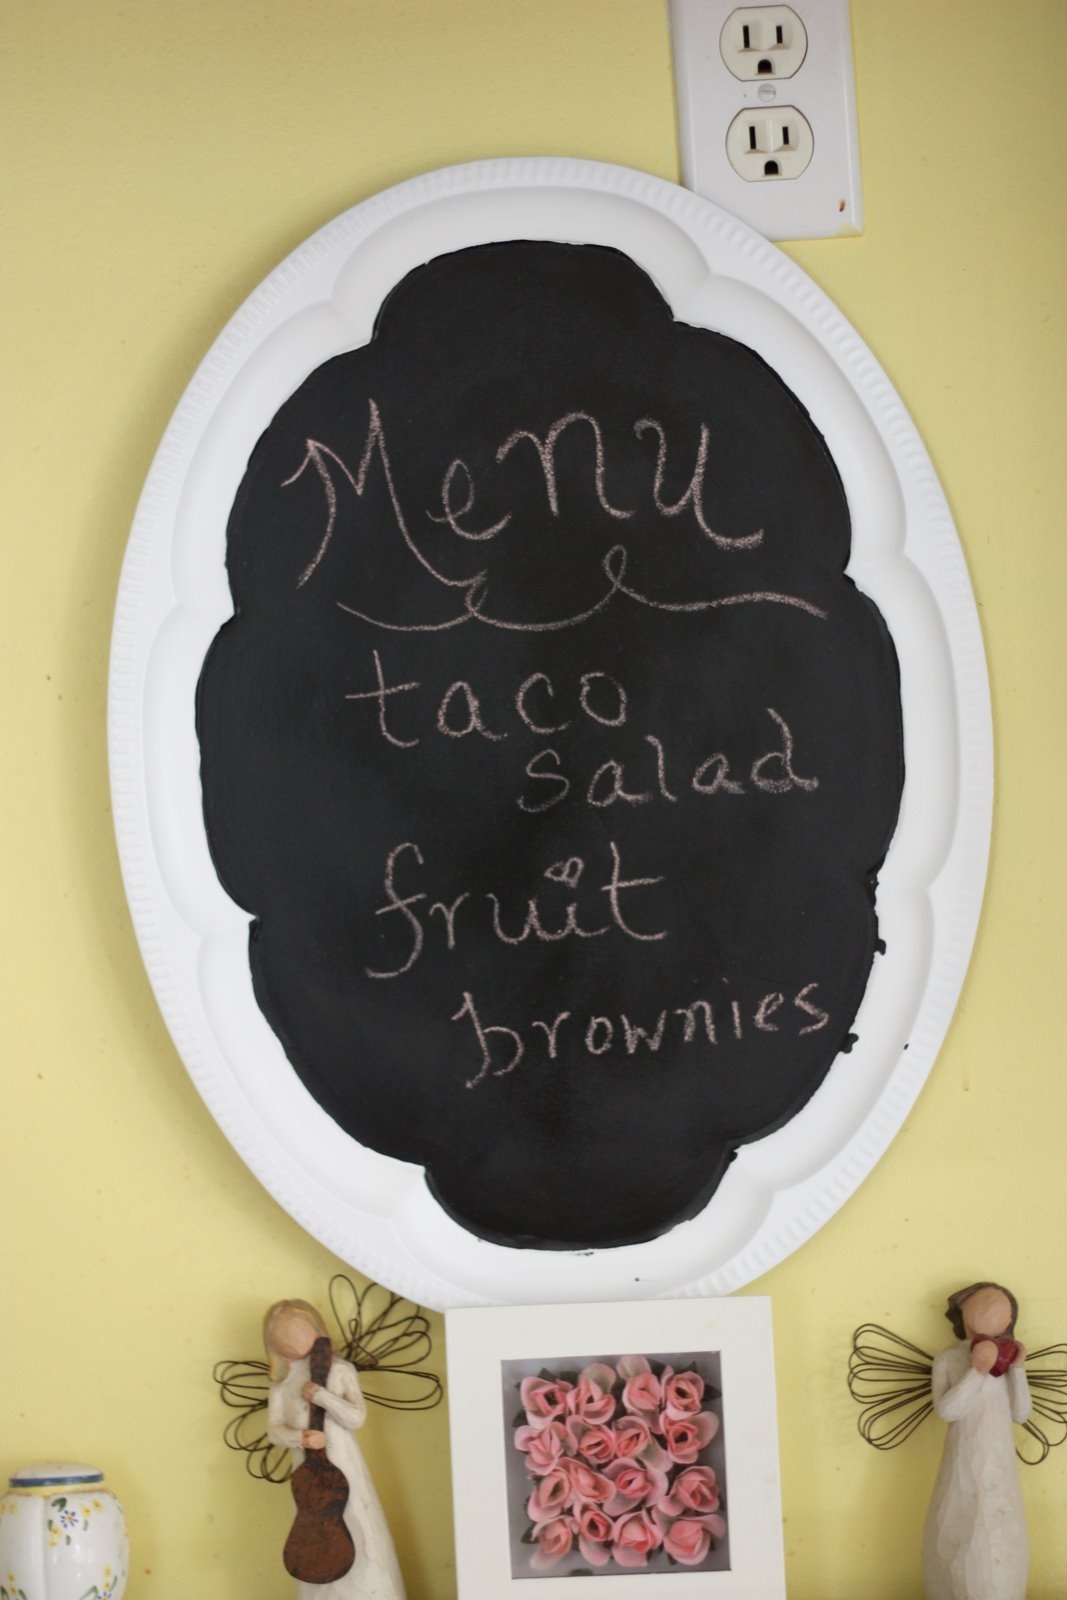 Menu
taco
salad
fruit
brownies